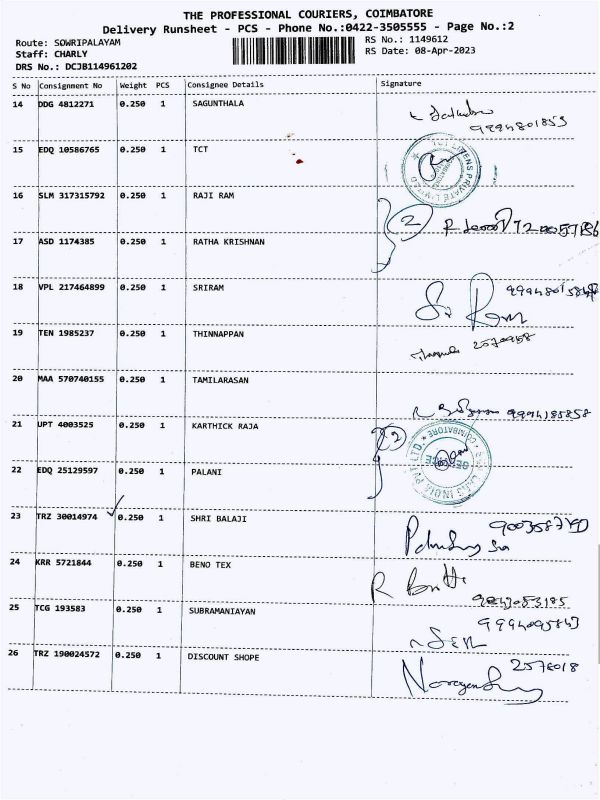 THE PROFESSIONAL COURIERS, COIMBATORE
Delivery Runsheet - PCS - Phone No.:0422-3505555 - Page No.:2
Route: SOWRIPALAYAM RS No.: 1149612
Staff: CHARLY RS Date: 08-Apr-2023
DRS No.: DCJB114961202
S No Consignment No Weight PCS Consignee Details Signature
14 DDG 4812271 0.250 1 SAGUNTHALA
9994801853
15 EDQ 10586765 0.250 1 TCT
16 SLM 317315792 0.250 1 RAJI RAM
2
17 ASD 1174385 0.250 1 RATHA KRISHNAN
18 VPL 217464899 0.250 1 SRIRAM
Ram
19 TEN 1985237 0.250 1 THINNAPPAN
2570958
20 MAA 570740155 0.250 1 TAMILARASAN
9994185858
21 UPT 4003525 0.250 1 KARTHICK RAJA
2
COIMBATORE
INDIA PVT. LTD.
22 EDQ 25129597 0.250 1 PALANI
23 TRZ 30014974 0.250 1 SHRI BALAJI
24 KRR 5721844 0.250 1 BENO TEX
25 TCG 193583 0.250 1 SUBRAMANIAYAN
9994095843
26 TRZ 190024572 0.250 1 DISCOUNT SHOPE
2578018